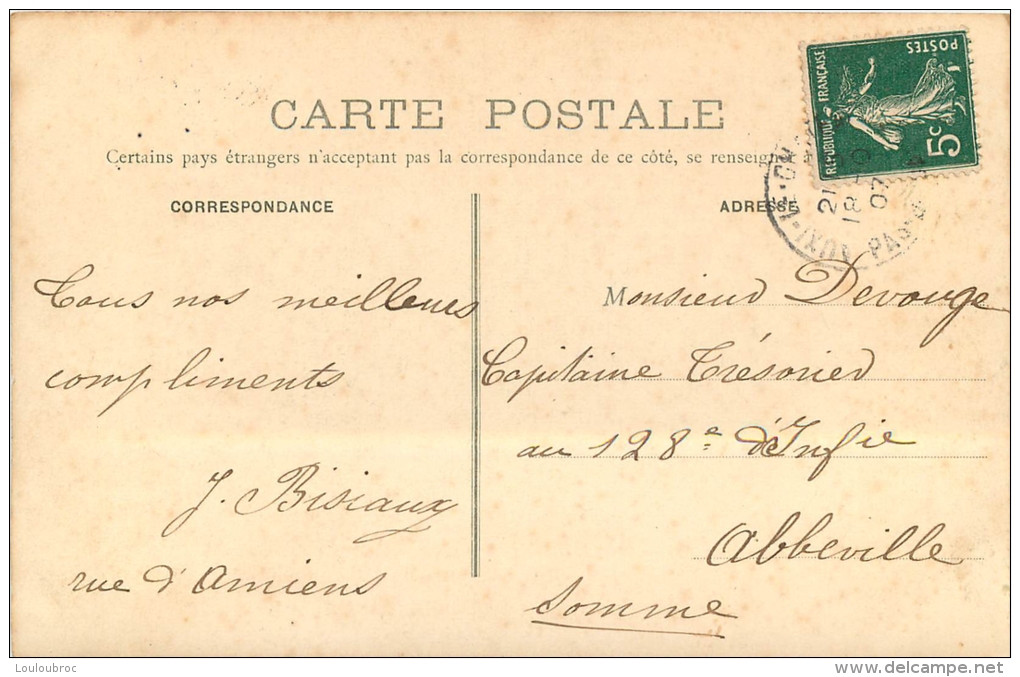 CARTE POSTALE
Certains pays étrangers n'acceptant pas la correspondance de ce côté, se renseigne
CORRESPONDANCE
ADRESSE
POSTES
RÉPUBLIQUE FRANÇAISE
5c
AUXI-LE-CH
PAS
21
18
07
Tous nos meilleurs
compliments
J. Bisiaux
rue d'Amiens
Monsieur Devouge
Capitaine Trésorier
au 128e d'Infie
Abbeville
Somme
Louloubroc
www.delcampe.net